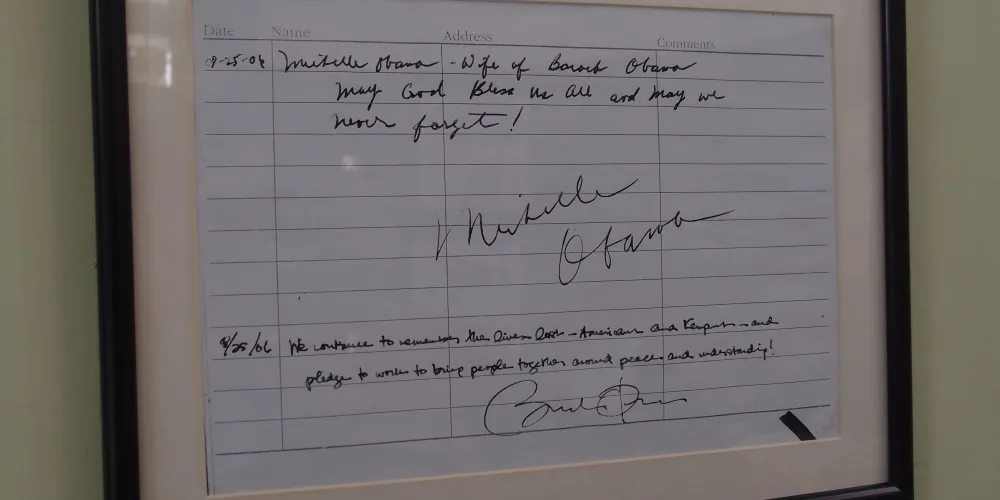 Date Name Address Comments
8-25-06 Michelle Obama - Wife of Barack Obama
May God Bless us All and may we
never forget!
Michelle
Obama
8/25/06 We continue to remember the lives lost - Americans and Kenyans - and
pledge to work to bring people together around peace and understanding!